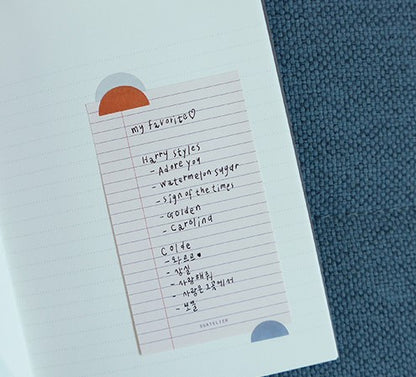 my favorite♡
Harry styles
- Adore you
- Watermelon sugar
- sign of the times
- Golden
- Carolina
Colde
- 와르르♥
- 상실
- 사랑해줘
- 사랑은 그곳에서
- 보물
OURTELIER